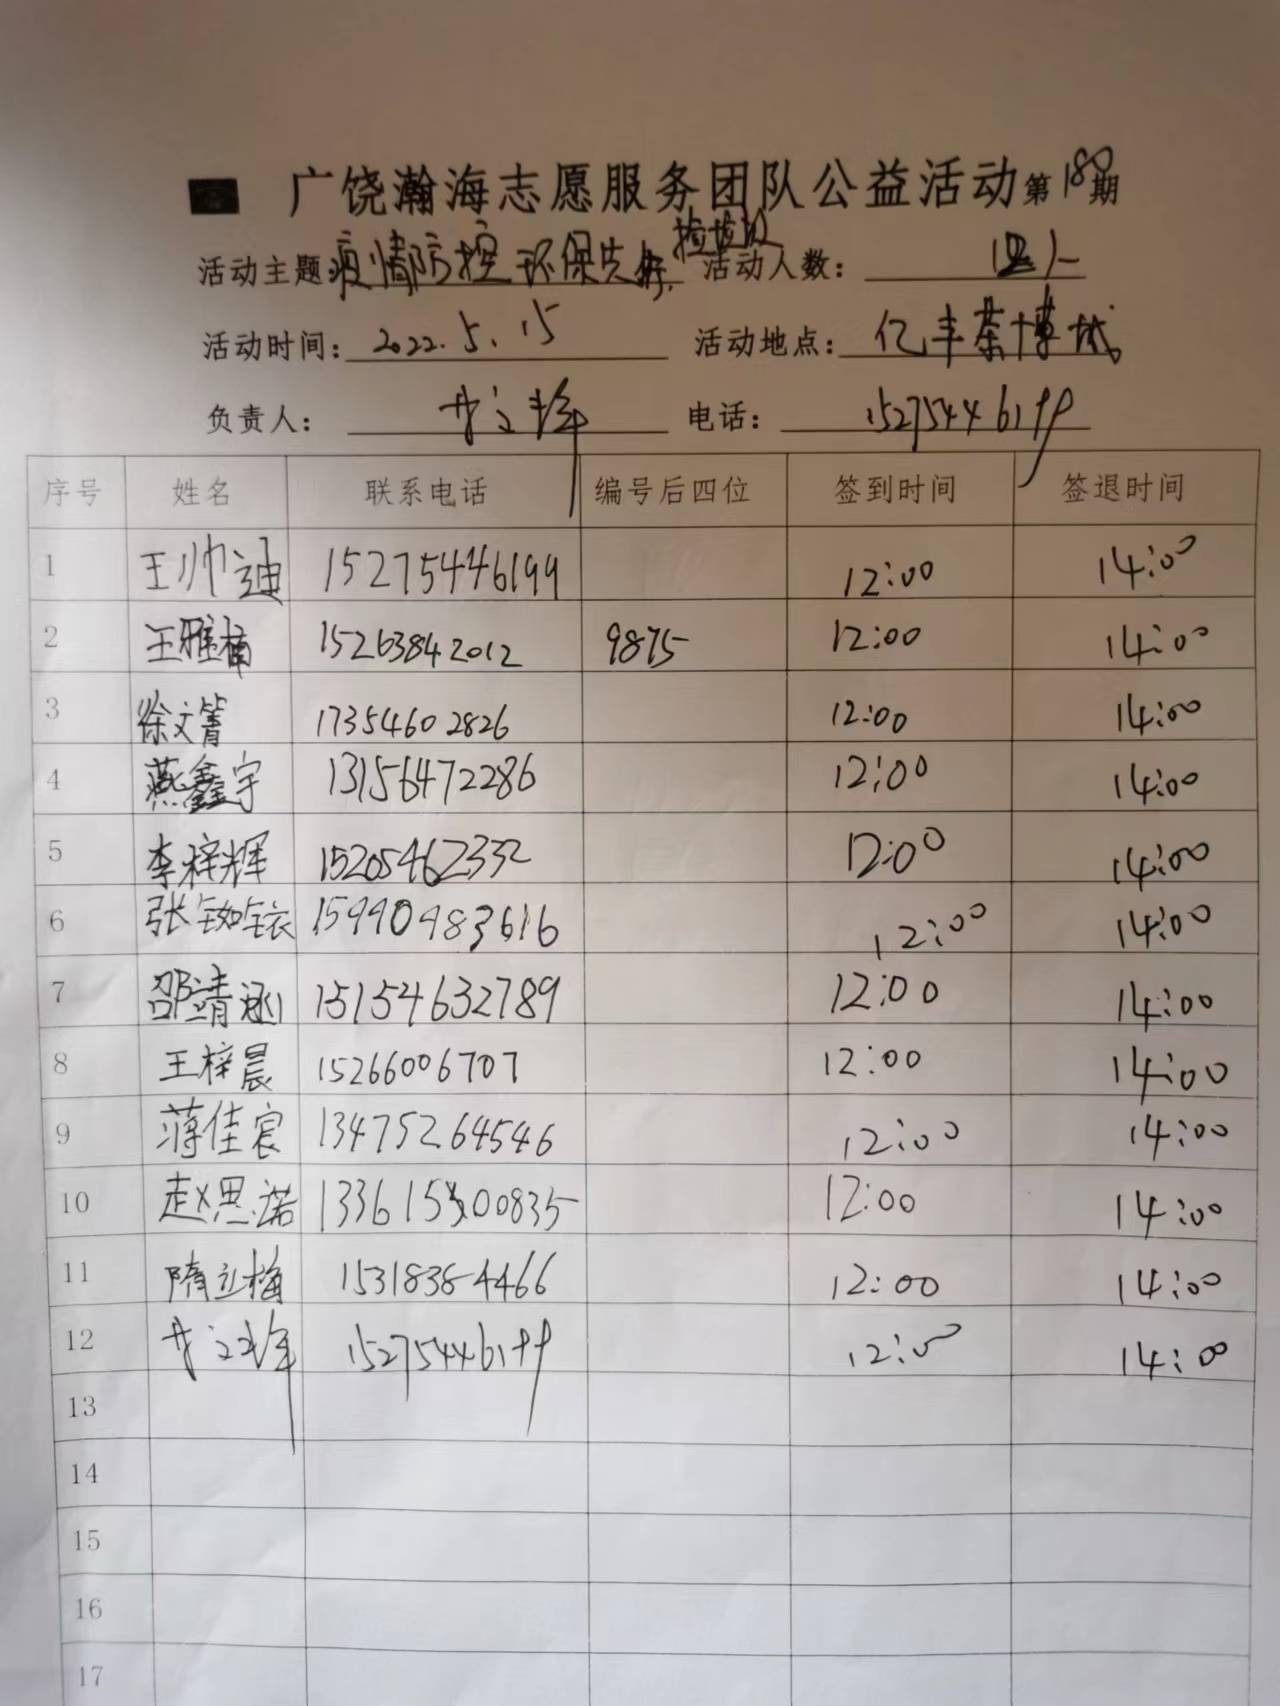 广饶瀚海志愿服务团队公益活动第180期
活动主题疫情防控环保先行,捡垃圾 活动人数: 12人
活动时间: 2022.5.15 活动地点: 亿丰茶博城
负责人: 电话: 15275446199
序号 姓名 联系电话 编号后四位 签到时间 签退时间
1 王帅迪 15275446199 12:00 14:00
2 王雅楠 15263842012 9875 12:00 14:00
3 徐文箐 17354602826 12:00 14:00
4 燕鑫宇 13156472286 12:00 14:00
5 李梓辉 15205462332 12:00 14:00
6 张钕铱 15990983616 12:00 14:00
7 邵靖涵 15154632789 12:00 14:00
8 王梓晨 15266006707 12:00 14:00
9 蒋佳宸 13475264546 12:00 14:00
10 赵思诺 13361500835 12:00 14:00
11 隋立梅 15318384466 12:00 14:00
12 15275446199 12:00 14:00
13
14
15
16
17